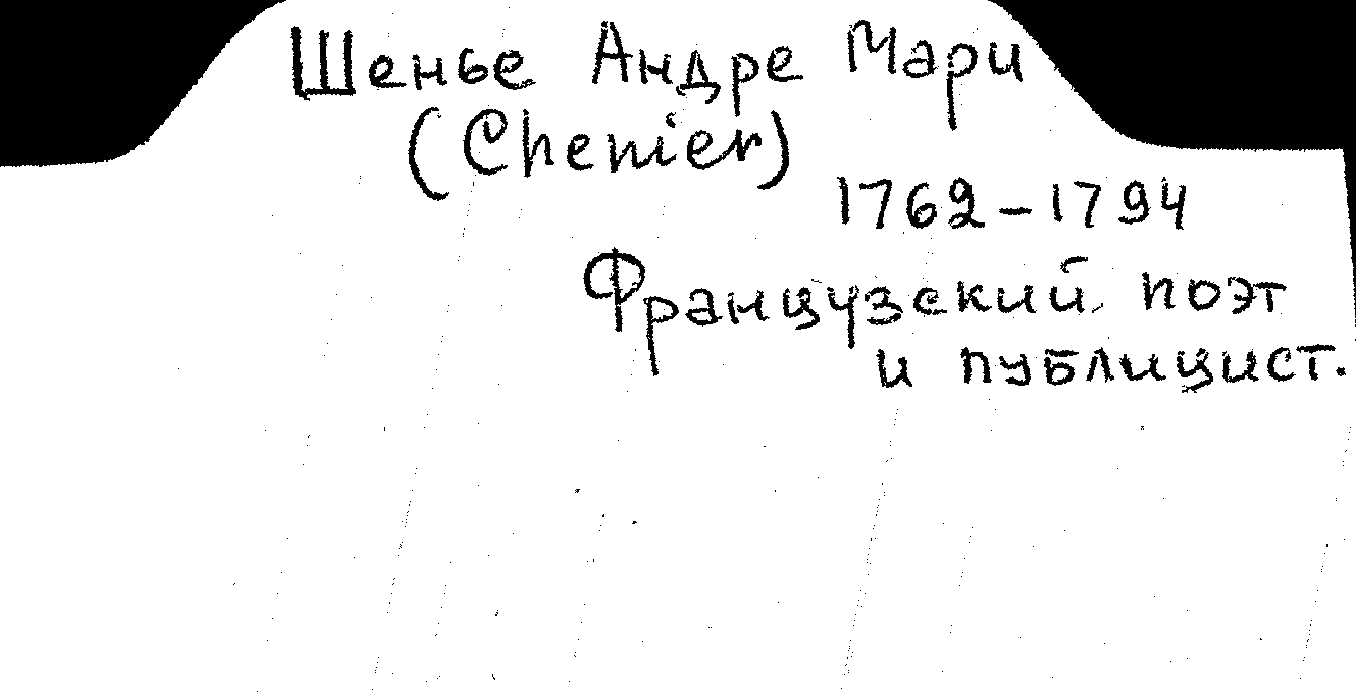 Шенье Андре Мари
(Chenier)
1762-1794
Французский поэт
и публицист.